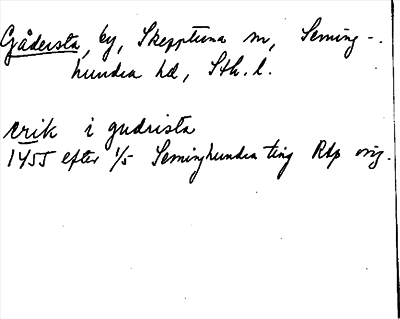 Gådersta, by, Skepptuna sn, Seming-
hundra hd, Sth. l.
erik i gudrista
1455 efter 1/5 Seminghundra ting Rap orig.